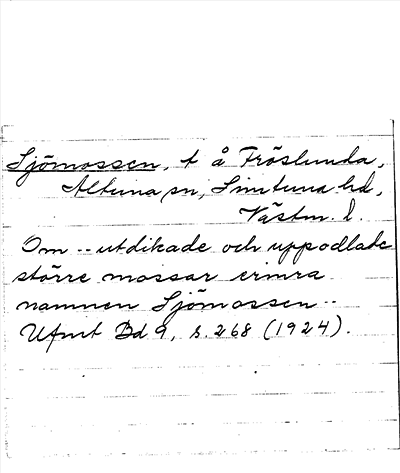 Sjömossen, t å Fröslunda,
Altuna sn, Simtuna hd,
Västm. l.
Om -- utdikade och uppodlade
större mossar erinra
namnen Sjömossen --
UFmt Bd 9, s. 268 (1924).